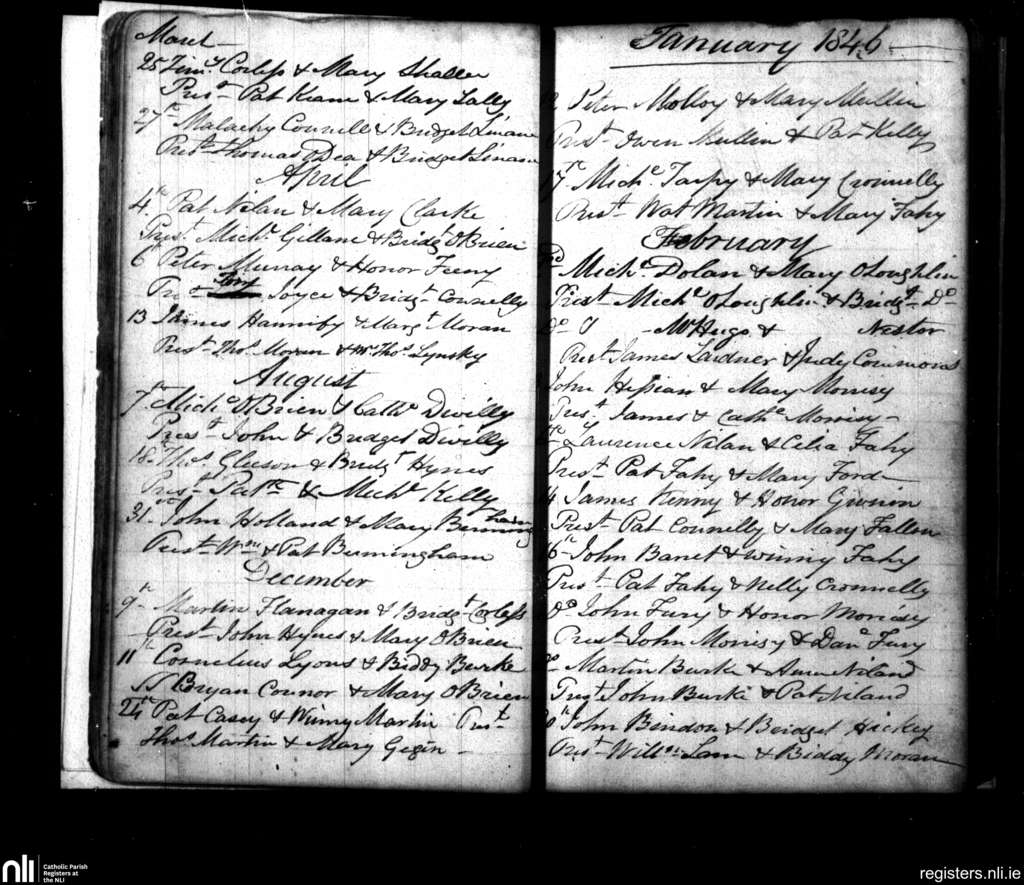 March
25 Timy Corless & Mary Shallee
Prest Pat Keane & Mary Lally
27th Malachy Connell & Bridget Linane
Prest Thomas ODea & Bridget Linane
April
4th Pat Nilan & Mary Clarke
Prest Michl Gillane & Bridgt OBrien
6 Peter Murray & Honor Feeny
Prest Joyce & Bridgt Connelly
13 James Hanniby & Margt Moran
Prest Thos Moran & Mr Thos Lynsky
August
7th Michl OBrien & Cathe Divilly
Prest John & Bridget Divilly
18th Thos Gleeson & Bridgt Hynes
Prest Patk & Michl Kelly
31 John Holland & Mary Bermingham
Prest Wm & Pat Bermingham
December
9th Martin Flanagan & Bridgt Corless
Prest John Hynes & Mary OBrien
11th Cornelius Lyons & Biddy Burke
Bryan Connor & Mary OBrien
24th Pat Casey & Winny Martin Prest
Thos Martin & Mary Gegin
January 1846
Peter Molloy & Mary Mullin
Prest Owen Mullin & Pat Kelly
Michl Tarpy & Mary Cronnelly
Prest Wat Martin & Mary Fahy
February
Michl Dolan & Mary OLoughlin
Prest Michl OLoughlin & Bridgt Do
Do McHugo & Nestor
Prest James Lardner & Judy Commons
John Hessian & Mary Morrisy
Prest James & Cathe Morrisy
Laurence Nilan & Celia Fahy
Prest Pat Fahy & Mary Ford
James Kenny & Honor Givnin
Prest Pat Connelly & Mary Fallon
John Baret & Winny Fahy
Prest Pat Fahy & Nelly Cronnelly
Do John Fury & Honor Morrisy
Prest John Morrisy & Danl Fury
Do Martin Burke & Anne Niland
Prest John Burke & Pat Niland
John Bindon & Bridget Hickey
Prest Willm Lane & Biddy Moran
nli
Catholic Parish
Registers at
the NLI
registers.nli.ie